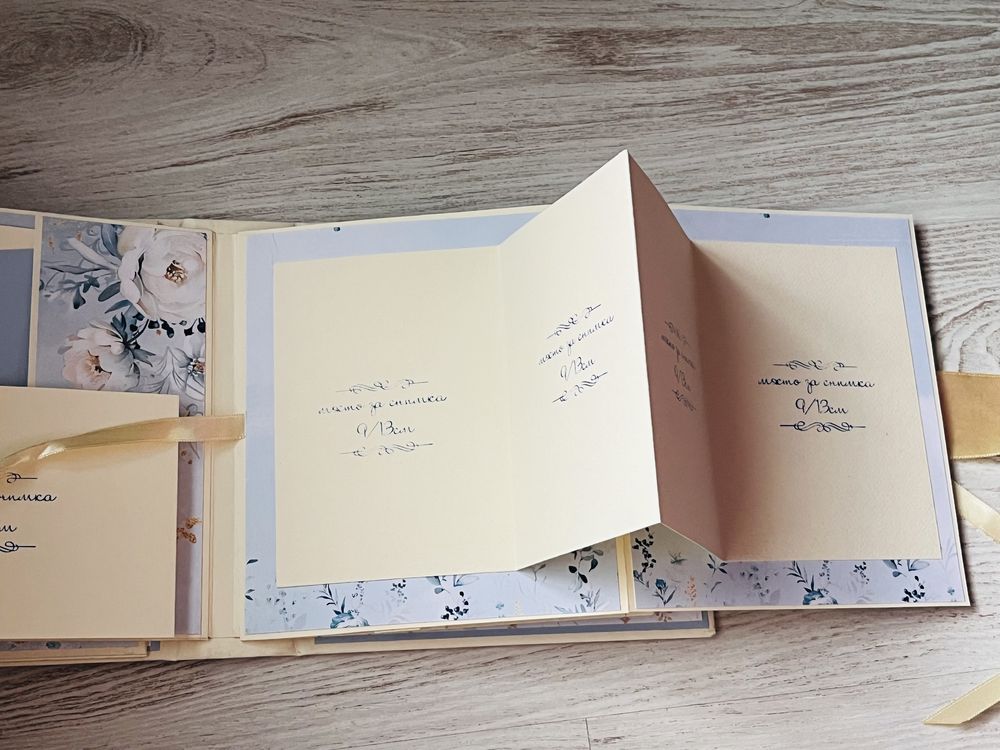 снимка
см
място за снимка
9/13см
място за снимка
9/13см
място за снимка
9/13см
място за снимка
9/13см